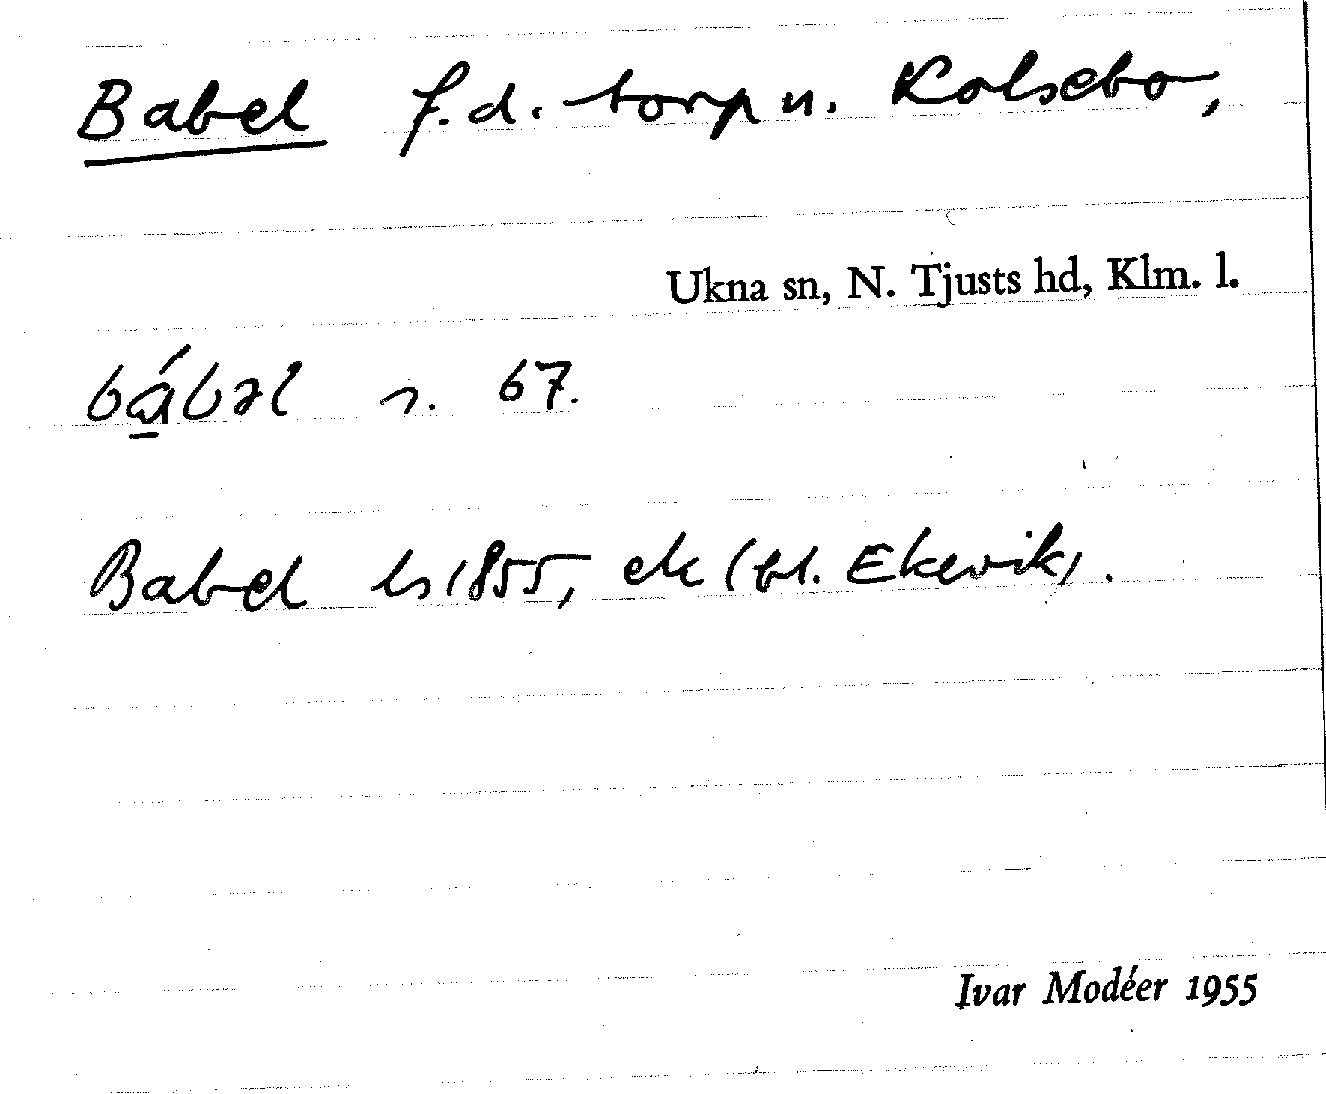 Babel f.d. torp u. Kolsebo,
Ukna sn, N. Tjusts hd, Klm. l.
bábəl s. 67.
Babel ls 1855, ek (bl. Ekevik).
Ivar Modéer 1955